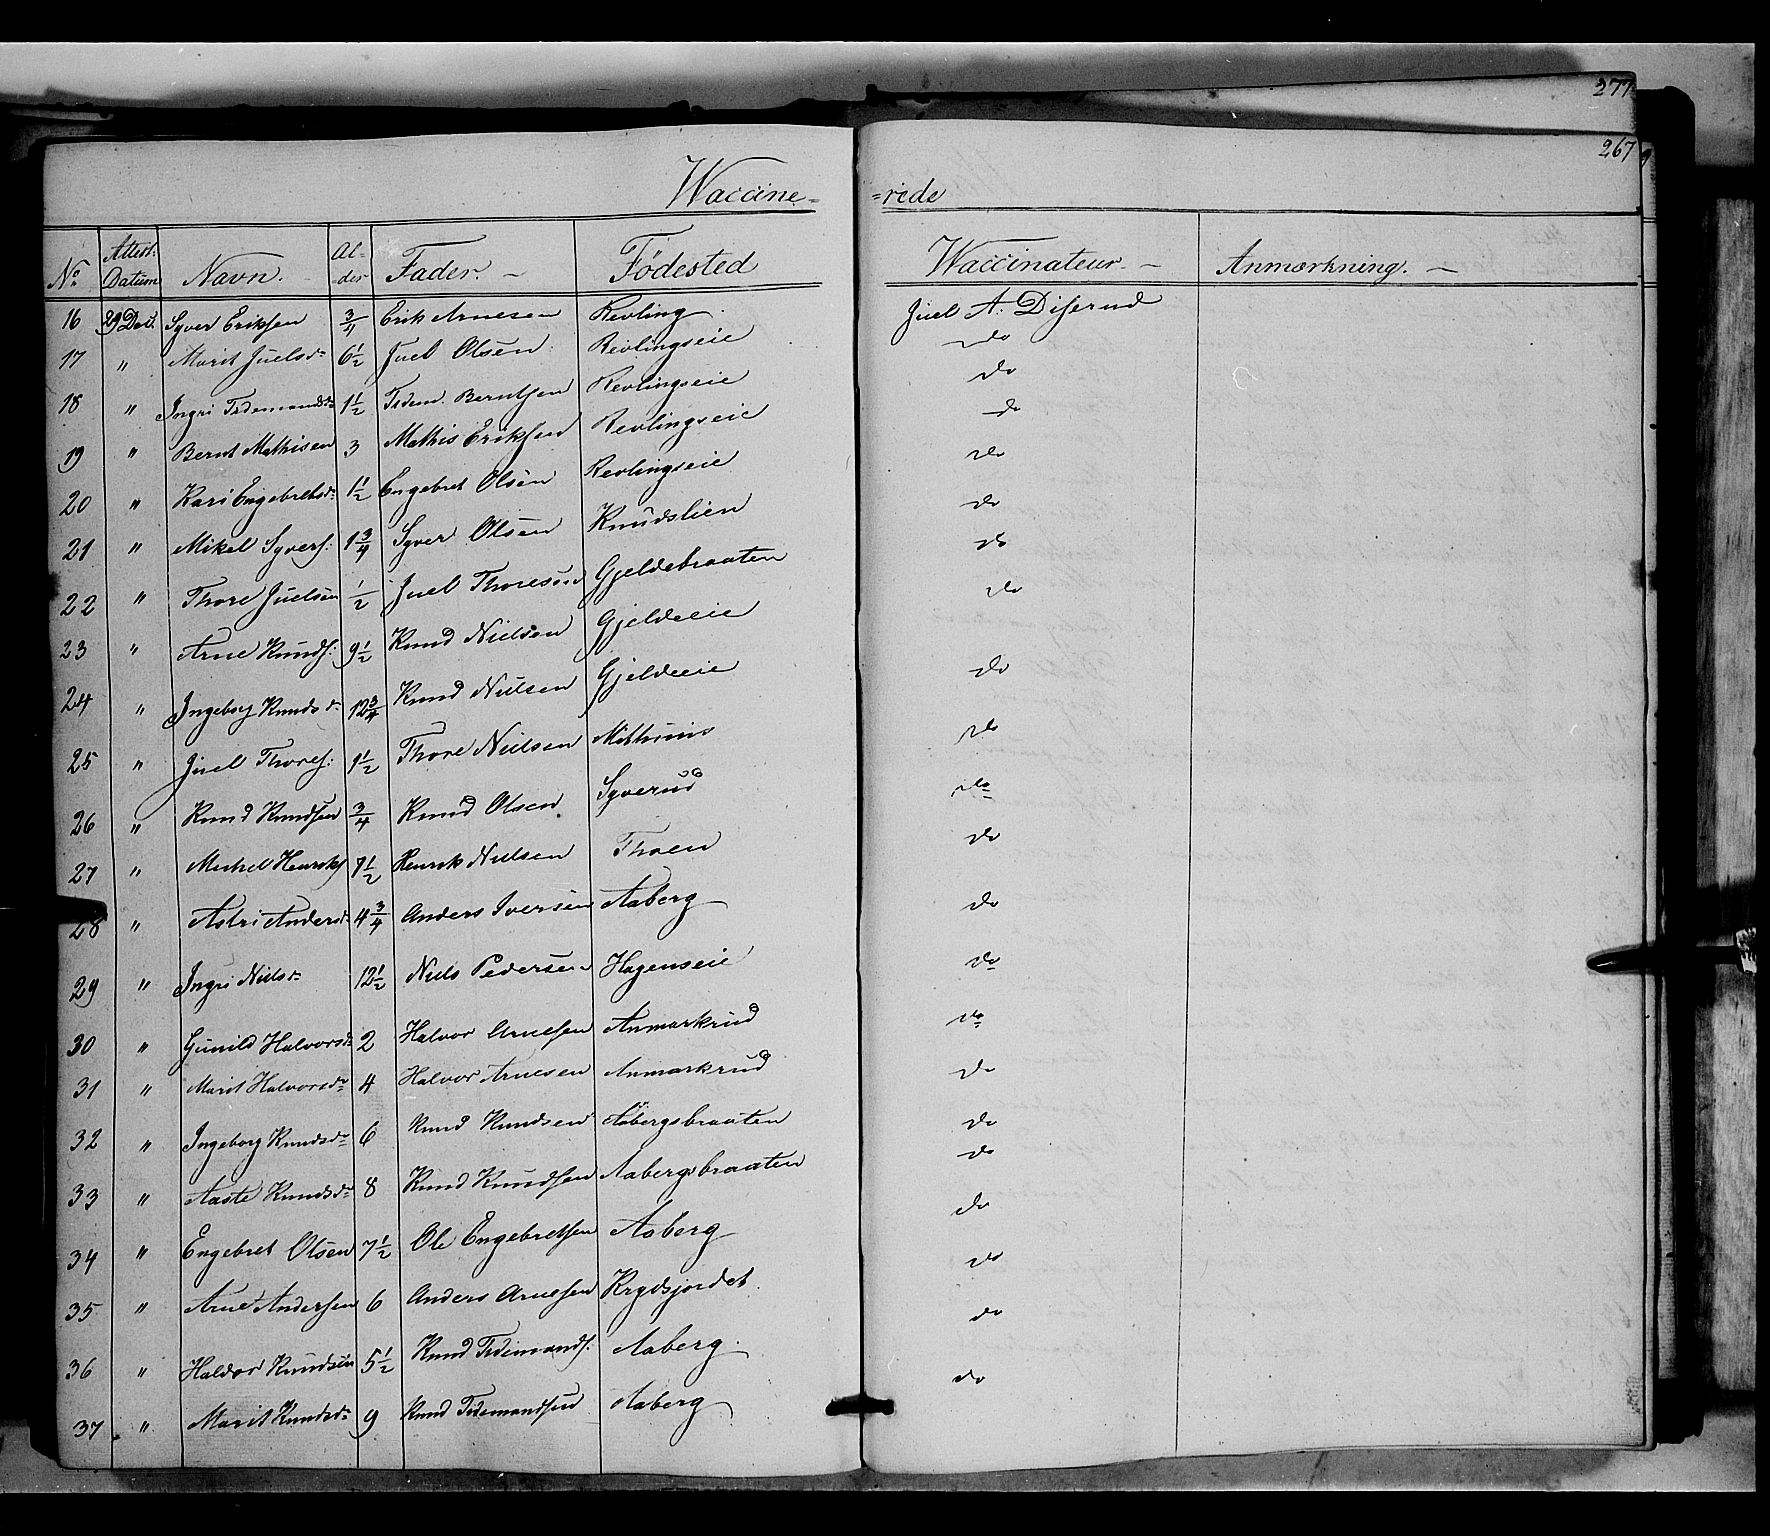 277
267
Waccine=
=rede
No Attest: Datum Navn. Al-der Fader. Fødested Waccinateur. Anmærkning.
16 29 Dec. Syver Eriksen 3/4 Erik Arnesen Revling Juel A. Diserud
17 " Marit Juelsd 6 1/2 Juel Olsen Revlingseie do
18 " Ingri Tidemandsd 1 1/2 Tidem. Berntsen Revlingseie do
19 " Bernt Mathisen 3 Mathis Eriksen Revlingseie do
20 " Kari Engebretsd 1 1/2 Engebret Olsen Revlingseie do
21 " Mikel Syvers: 1 3/4 Syver Olsen Knudslien do
22 " Thore Juelsen 1/2 Juel Thoresen Gjeldebraaten do
23 " Arne Knuds: 9 1/2 Knud Nielsen Gjeldeeie do
24 " Ingeborg Knudsd 12 3/4 Knud Nielsen Gjeldeeie do
25 " Juel Thores: 1 1/2 Thore Nielsen do
26 " Knud Knudsen 3/4 Knud Olsen Syverud do
27 " Michel Henriks 1 1/2 Henrik Nielsen Thoen do
28 " Astri Andersd 4 3/4 Anders Iversen Aaberg do
29 " Ingri Nielsd 12 1/2 Niels Pedersen Hagenseie do
30 " Gunild Halvorsd 2 Halvor Arnesen Anmarkrud do
31 " Marit Halvorsd 4 Halvor Arnesen Anmarkrud do
32 " Ingeborg Knudsd 6 Knud Knudsen Aabergsbraaten do
33 " Aaste Knudsd 8 Knud Knudsen Aabergsbraaten do
34 " Engebret Olsen 7 1/2 Ole Engebretsen Aaberg do
35 " Arne Andersen 6 Anders Arnesen Krydsjordet do
36 " Haldor Knudsen 5 1/2 Knud Tidemands: Aaberg do
37 " Marit Knudsd 9 Knud Tidemandsen Aaberg do